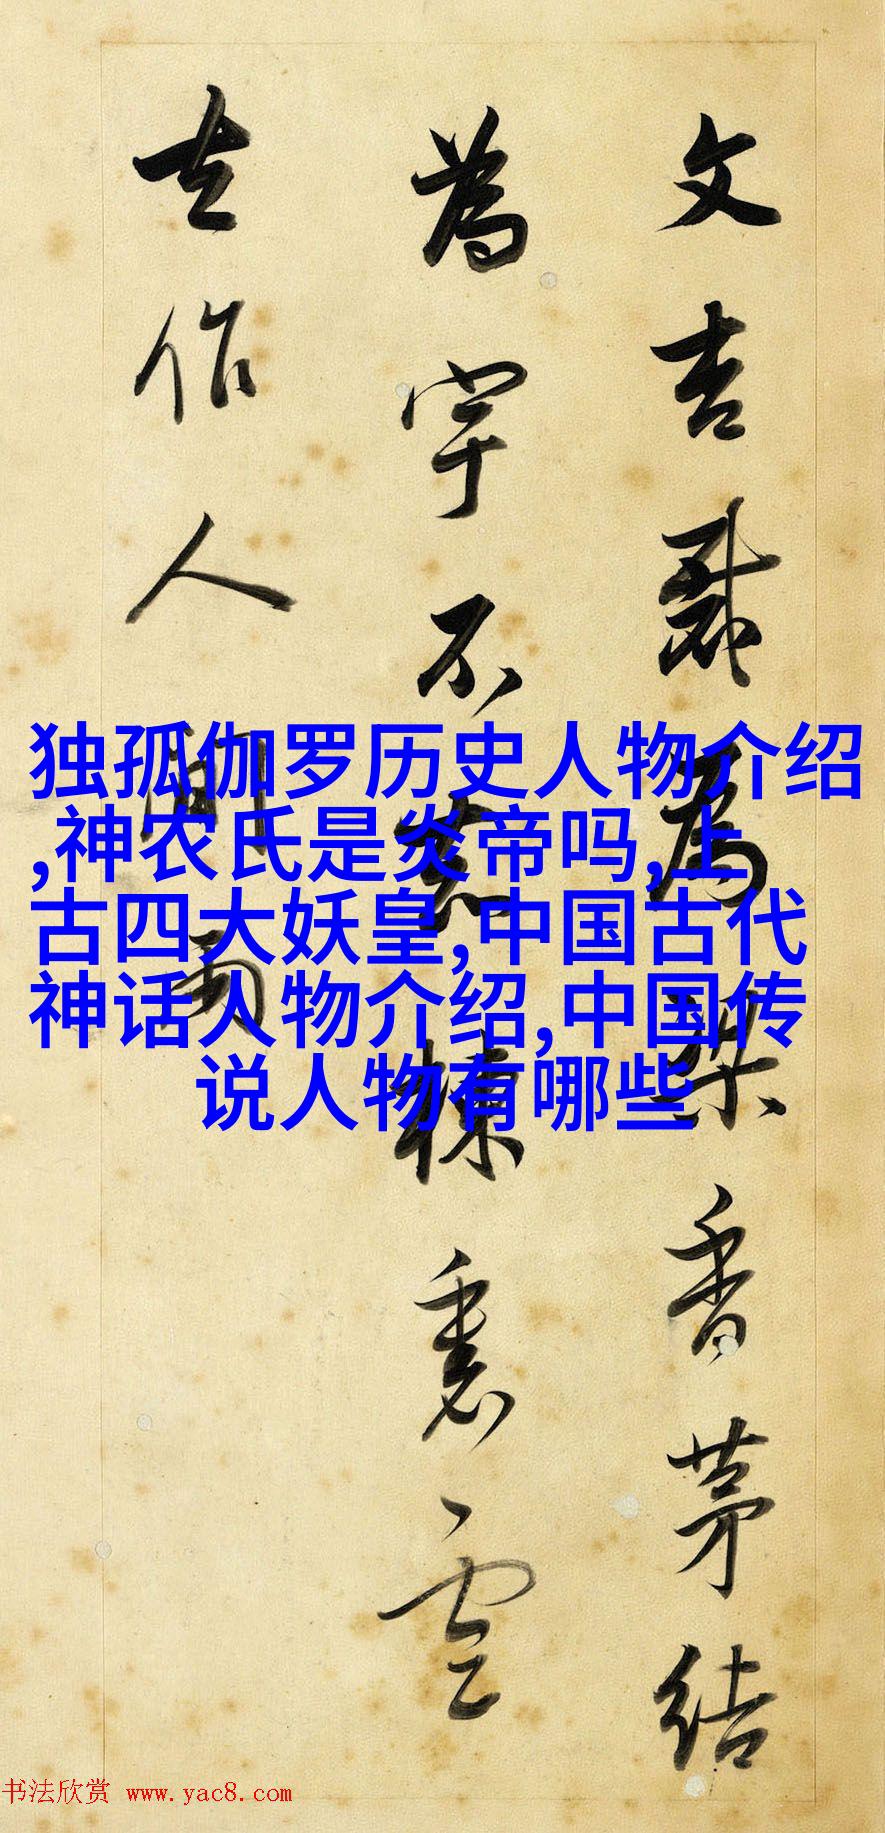 文杏裁為梁香茅結
為宇不知棟裏雲
去作人間雨
独孤伽罗历史人物介绍
,神农氏是炎帝吗,上
古四大妖皇,中国古代
神话人物介绍,中国传
说人物有哪些
书法欣赏 www.yac8.com